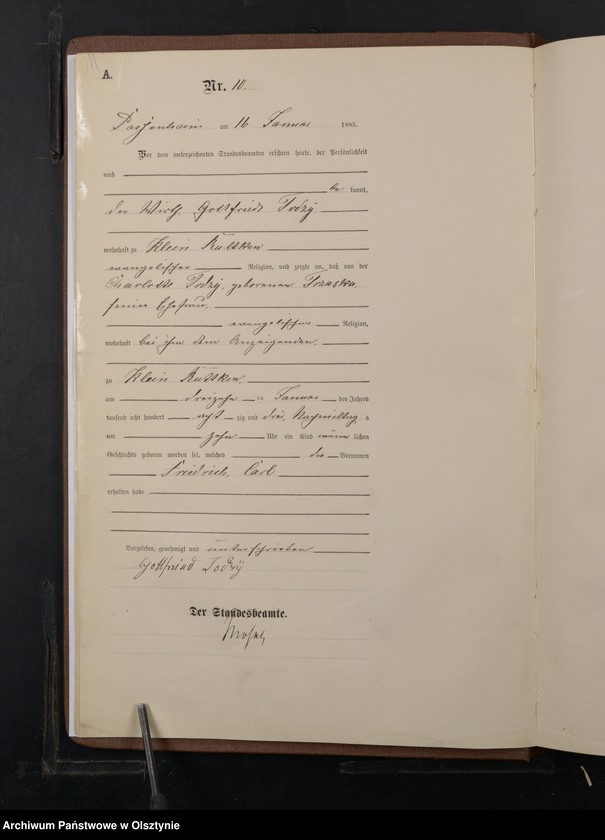 A.
Nr. 10.
Passenheim am 16 Januar 1883.
Vor dem unterzeichneten Standesbeamten erschien heute, der Persönlichkeit
nach
be kannt,
der Wirth Gottfried
wohnhaft zu Klein Rutken
evangelischer Religion, und zeigte an, daß von der
Charlotte geborenen Trzaska
seiner Ehefrau,
evangelischer Religion,
wohnhaft bei ihm dem Anzeigenden,
zu Klein Rutken,
am dreizehn ten Januar des Jahres
tausend acht hundert acht zig und drei, Nachmittag s
um zehn Uhr ein Kind männ lichen
Geschlechts geboren worden sei, welches die Vornamen
Friedrich, Carl
erhalten habe
Vorgelesen, genehmigt und unterschrieben
Gottfried
Der Standesbeamte.
Archiwum Państwowe w Olsztynie